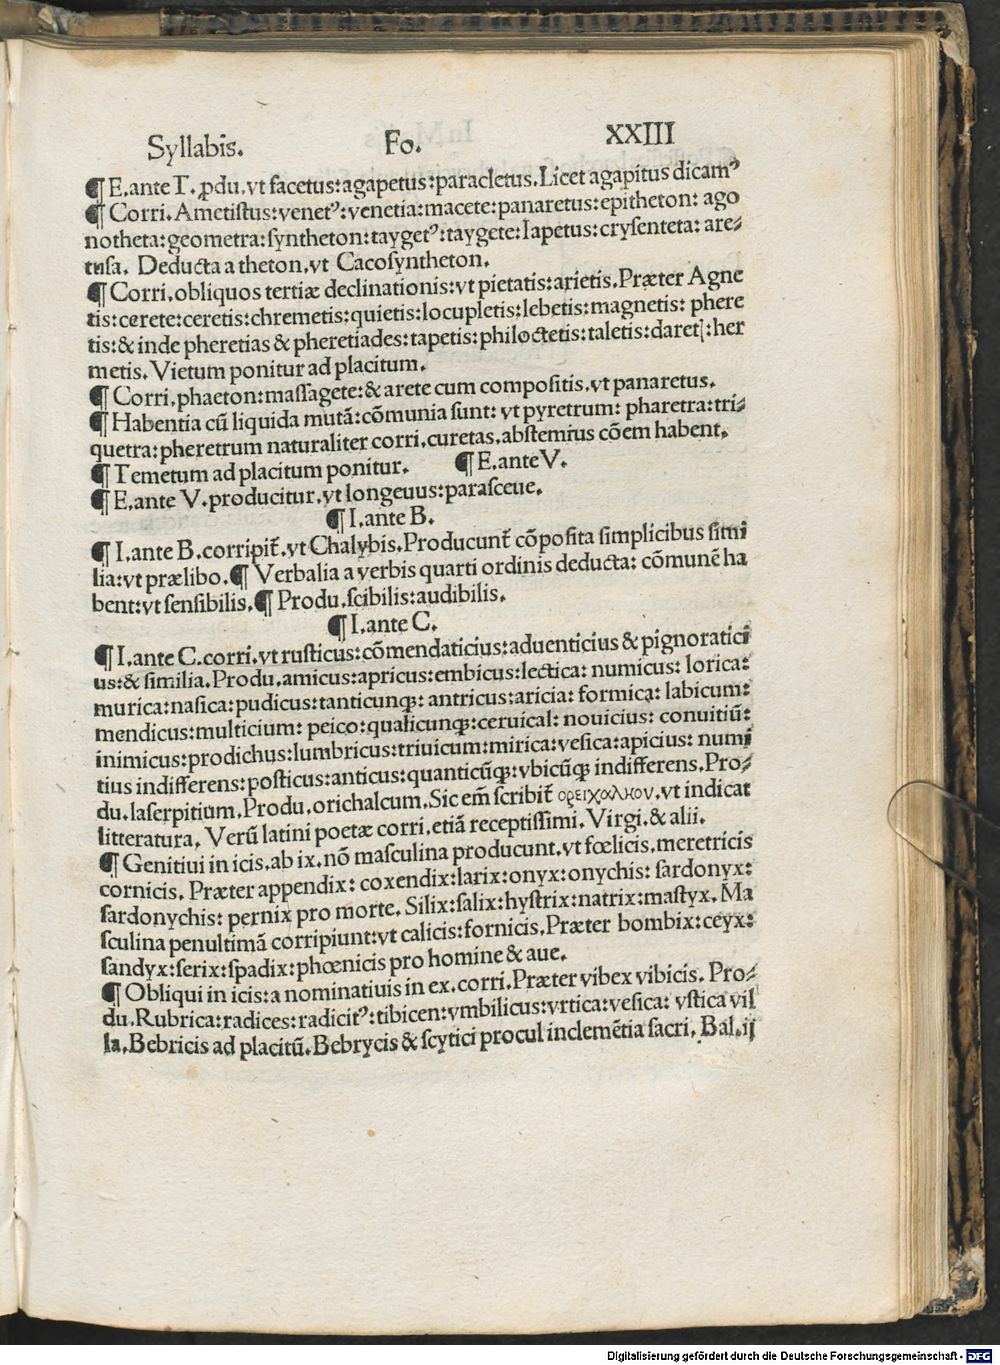 Syllabis. Fo. XXIII
¶ E.ante T. ꝓdu.vt facetus:agapetus:paracletus.Licet agapitus dicamꝰ
¶ Corri.Ametistus:venetꝰ:venetia:macete:panaretus:epitheton: ago
notheta:geometra:syntheton:taygetꝰ:taygete:Iapetus:crysenteta: are⸗
tusa. Deducta a theton,vt Cacosyntheton.
¶ Corri,obliquos tertiæ declinationis:vt pietatis:arietis.Præter Agne
tis:cerete:ceretis:chremetis:quietis:locupletis:lebetis:magnetis: phere
tis:& inde pheretias & pheretiades:tapetis:philoctetis:taletis:daretꝭ:her
metis.Vietum ponitur ad placitum.
¶ Corri,phaeton:massagete:& arete cum compositis.vt panaretus.
¶ Habentia cū liquida mutā:cōmunia sunt: vt pyretrum: pharetra:tri⸗
quetra:pheretrum naturaliter corri.curetas.abstemius cōem habent.
¶ Temetum ad placitum ponitur. ¶ E.ante V.
¶ E.ante V.producitur.vt longeuus:parasceue.
¶ I.ante B.
¶ I.ante B.corripit̃.vt Chalybis.Producunt̃ cōposita simplicibus simi
lia:vt prælibo.¶ Verbalia a verbis quarti ordinis deducta: cōmunē ha
bent:vt sensibilis.¶ Produ.scibilis:audibilis.
¶ I.ante C.
¶ I.ante C.corri.vt rusticus:cōmendaticius:aduenticius & pignoratici
us:& similia.Produ.amicus:apricus:embicus:lectica: numicus: lorica:
murica:nasica:pudicus:tanticunqꝫ: antricus:aricia: formica: labicum:
mendicus:multicium: peico:qualicunqꝫ:ceruical: nouicius: conuitiū:
inimicus:prodichus:lumbricus:triuicum:mirica:vesica:apicius: numi
tius indifferens:posticus:anticus:quanticūqꝫ:vbicūqꝫ indifferens.Pro⸗
du.laserpitium.Produ.orichalcum.Sic em̄ scribit̃ ορειχαλκον.vt indicat
litteratura. Verū latini poetæ corri.etiā receptissimi.Virgi.& alii.
¶ Genitiui in icis.ab ix.nō masculina producunt.vt fœlicis.meretricis
cornicis. Præter appendix: coxendix:larix:onyx:onychis: sardonyx:
sardonychis: pernix pro morte. Silix:salix:hystrix:natrix:mastyx. Ma
sculina penultimā corripiunt:vt calicis:fornicis.Præter bombix:ceyx:
sandyx:serix:spadix:phœnicis pro homine & aue.
¶ Obliqui in icis:a nominatiuis in ex.corri.Præter vibex vibicis. Pro⸗
du.Rubrica:radices:radicitꝰ:tibicen:vmbilicus:vrtica:vesica: vstica vil
la.Bebricis ad placitū.Bebrycis & scytici procul inclemētia sacri. Bal.ij
Digitalisierung gefördert durch die Deutsche Forschungsgemeinschaft - DFG